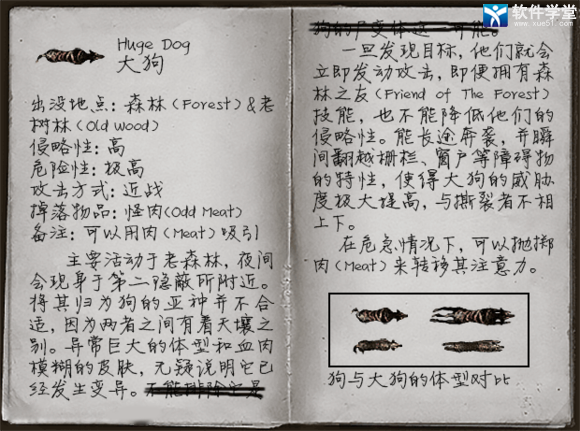 Huge Dog
大狗
出没地点：森林（Forest）&老
树林（Old Wood）
侵略性：高
危险性：极高
攻击方式：近战
掉落物品：怪肉（Odd Meat）
备注：可以用肉（Meat）吸引
主要活动于老森林，夜间
会现身于第二隐蔽所附近。
将其归为狗的亚种并不合
适，因为两者之间有着天壤之
别。异常巨大的体型和血肉
模糊的皮肤，无疑说明它已
经发生变异。不能排除它是
狗的尸变体这一可能。
一旦发现目标，他们就会
立即发动攻击，即便拥有森
林之友（Friend of The Forest）
技能，也不能降低他们的
侵略性。能长途奔袭，并瞬
间翻越栅栏、窗户等障碍物
的特性，使得大狗的威胁
度极大提高，与撕裂者不相
上下。
在危急情况下，可以抛掷
肉（Meat）来转移其注意力。
狗与大狗的体型对比
软件学堂
www.xue51.com